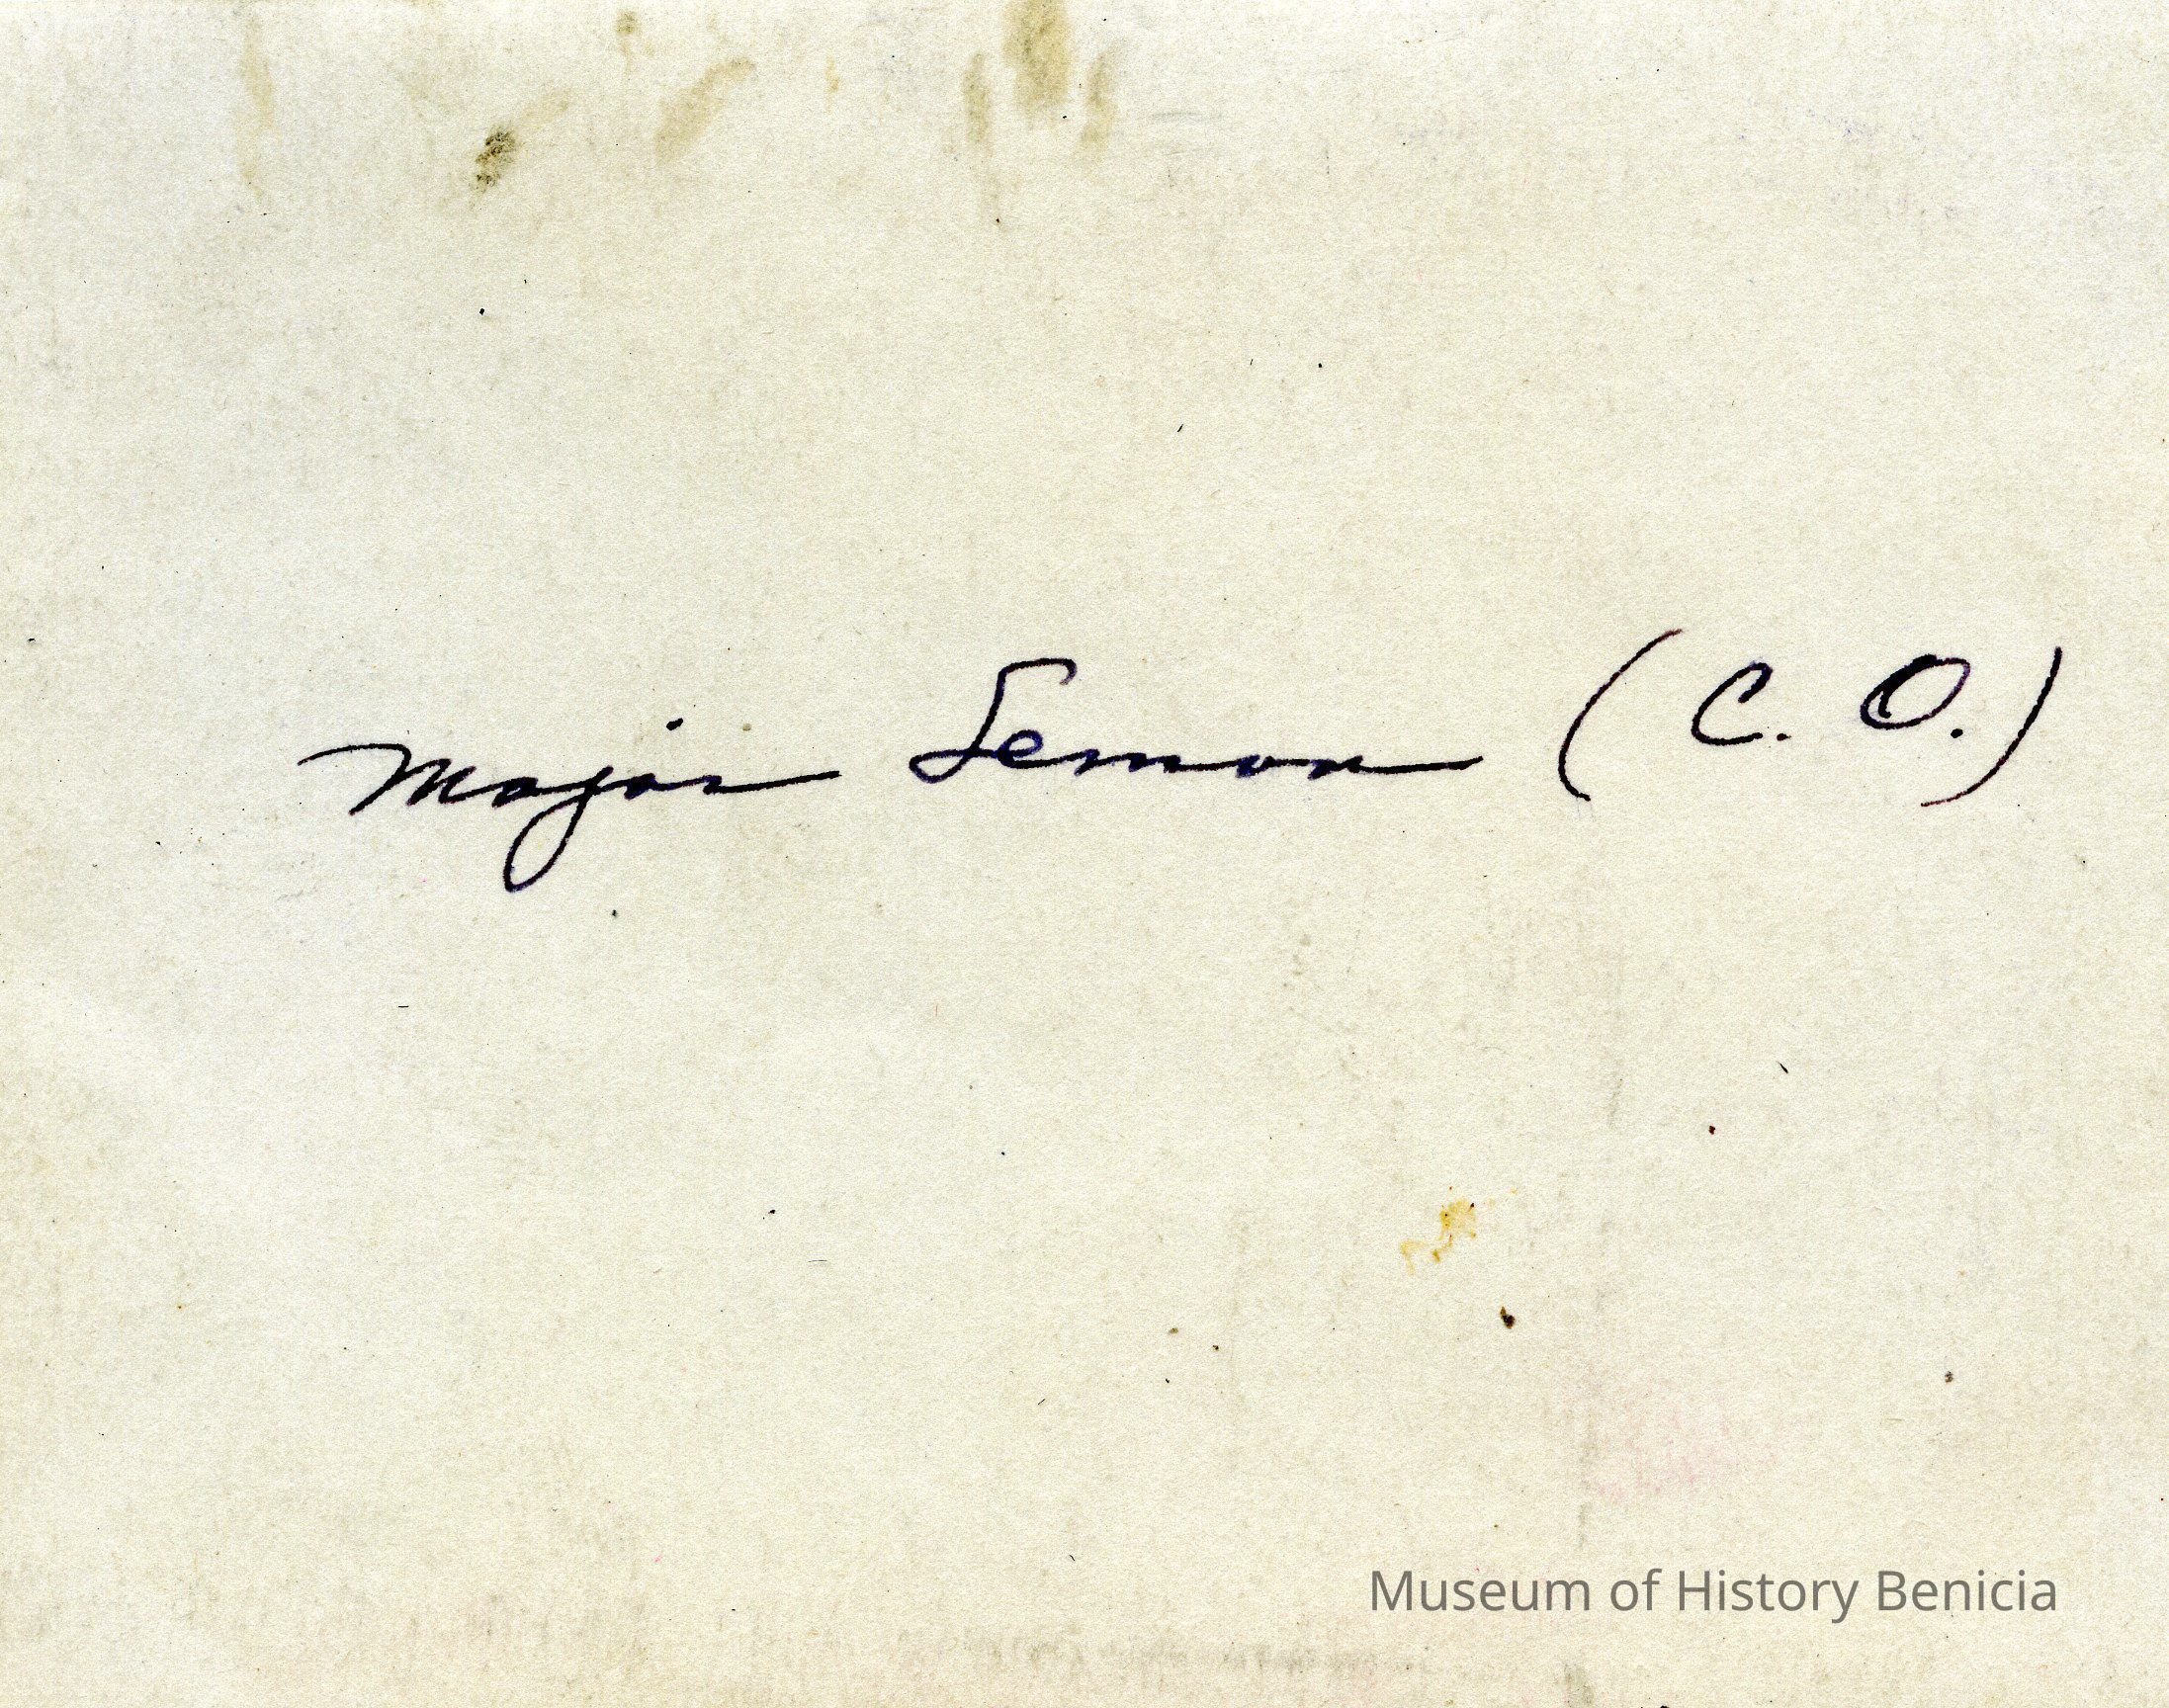 Major Lemon (C. O.)
Museum of History Benicia